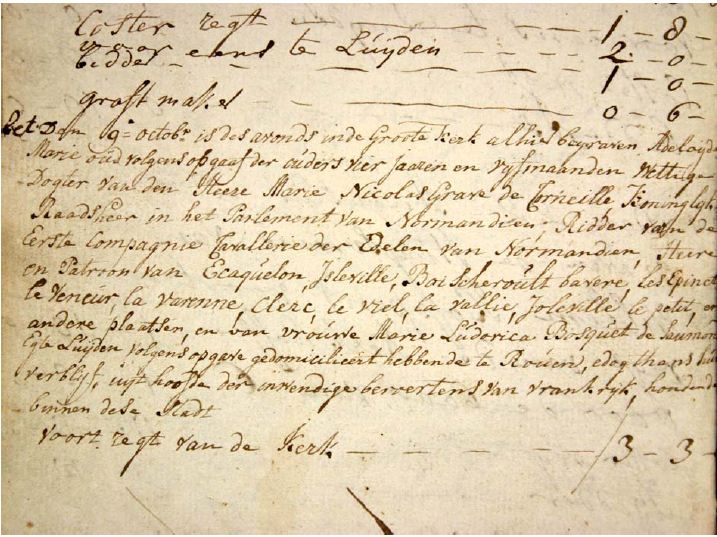 Coster regt — — — 1 - 8 -
voor eens te Luyden — 2 - 0 -
bidder — — — — 1 - 0 -
graft maken — — — 0 - 6 -
Oct. Den 9e octobr. is des avonds inde Groote Kerk alhier begraven Adelayde
Marie oud volgens opgaaf der ouders vier Jaaren en vyf maanden Wettige
Dogter van den Heere Marie Nicolas Grave de Corneille Koninglyk
Raadsheer in het Parlement van Normandien, Ridder van de
Eerste Compagnie Cavallerie der Edelen van Normandien, Heere
en Patroon van Ecaquelon, Isleville, Boischeroult bavere, les Epinets
le Veneur, la varenne, Clerc, le viel, la vallie, Joleville le petit, en
andere plaatsen, en van vrouwe Marie Ludovica Bosquet de Saumon
Egte Luyden volgens opgave gedomicilieert hebbende te Roúen, edog thans hun
verblyf, uyt hoofde der inwendige beroertens van vrankryk, houdende
binnen dese Stadt
voort regt van de Kerk — — — — 3 - 3 -